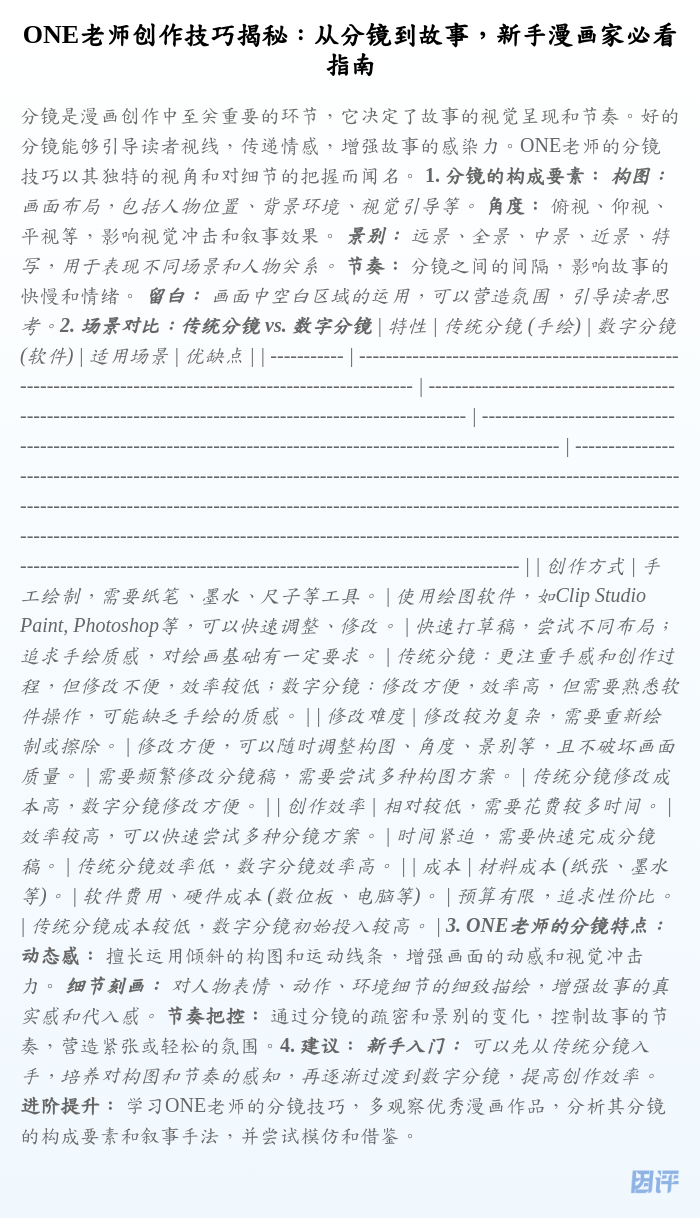 ONE老师创作技巧揭秘：从分镜到故事，新手漫画家必看
指南
分镜是漫画创作中至关重要的环节，它决定了故事的视觉呈现和节奏。好的
分镜能够引导读者视线，传递情感，增强故事的感染力。ONE老师的分镜
技巧以其独特的视角和对细节的把握而闻名。 1. 分镜的构成要素： 构图：
画面布局，包括人物位置、背景环境、视觉引导等。 角度： 俯视、仰视、
平视等，影响视觉冲击和叙事效果。 景别： 远景、全景、中景、近景、特
写，用于表现不同场景和人物关系。 节奏： 分镜之间的间隔，影响故事的
快慢和情绪。 留白： 画面中空白区域的运用，可以营造氛围，引导读者思
考。2. 场景对比：传统分镜 vs. 数字分镜 | 特性 | 传统分镜 (手绘) | 数字分镜
(软件) | 适用场景 | 优缺点 | | ----------- | ------------------------------------------------
----------------------------------------------------------- | -------------------------------------
------------------------------------------------------------------- | -----------------------------
--------------------------------------------------------------------------------- | ---------------
---------------------------------------------------------------------------------------------------
---------------------------------------------------------------------------------------------------
---------------------------------------------------------------------------------------------------
--------------------------------------------------------------------------- | | 创作方式 | 手
工绘制，需要纸笔、墨水、尺子等工具。 | 使用绘图软件，如Clip Studio
Paint, Photoshop等，可以快速调整、修改。 | 快速打草稿，尝试不同布局；
追求手绘质感，对绘画基础有一定要求。 | 传统分镜：更注重手感和创作过
程，但修改不便，效率较低；数字分镜：修改方便，效率高，但需要熟悉软
件操作，可能缺乏手绘的质感。 | | 修改难度 | 修改较为复杂，需要重新绘
制或擦除。 | 修改方便，可以随时调整构图、角度、景别等，且不破坏画面
质量。 | 需要频繁修改分镜稿，需要尝试多种构图方案。 | 传统分镜修改成
本高，数字分镜修改方便。 | | 创作效率 | 相对较低，需要花费较多时间。 |
效率较高，可以快速尝试多种分镜方案。 | 时间紧迫，需要快速完成分镜
稿。 | 传统分镜效率低，数字分镜效率高。 | | 成本 | 材料成本 (纸张、墨水
等)。 | 软件费用、硬件成本 (数位板、电脑等)。 | 预算有限，追求性价比。
| 传统分镜成本较低，数字分镜初始投入较高。 | 3. ONE老师的分镜特点：
动态感： 擅长运用倾斜的构图和运动线条，增强画面的动感和视觉冲击
力。 细节刻画： 对人物表情、动作、环境细节的细致描绘，增强故事的真
实感和代入感。 节奏把控： 通过分镜的疏密和景别的变化，控制故事的节
奏，营造紧张或轻松的氛围。4. 建议： 新手入门： 可以先从传统分镜入
手，培养对构图和节奏的感知，再逐渐过渡到数字分镜，提高创作效率。
进阶提升： 学习ONE老师的分镜技巧，多观察优秀漫画作品，分析其分镜
的构成要素和叙事手法，并尝试模仿和借鉴。
因评